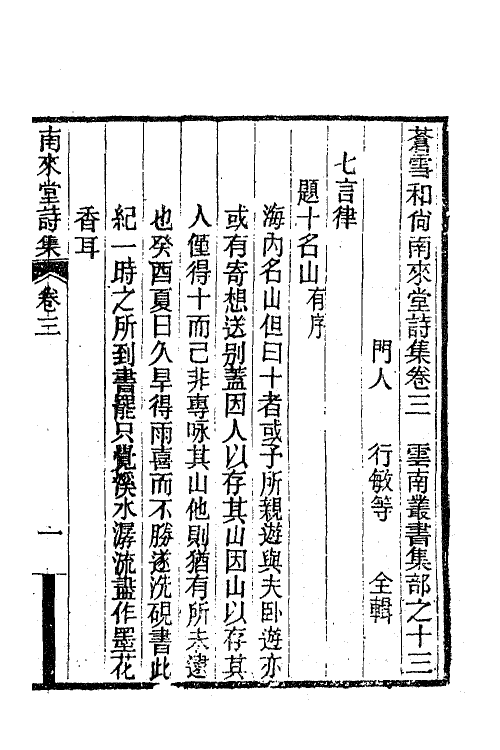 蒼雪和尙南來堂詩集卷三　雲南叢書集部之十三
門人　行敏等　仝輯
七言律
題十名山有序
海內名山但曰十者或予所親遊與夫卧遊亦
或有寄想送别蓋因人以存其山因山以存其
人僅得十而已非專咏其山他則猶有所未逮
也癸酉夏日久旱得雨喜而不勝遂洗硯書此
紀一時之所到書罷只覺溪水潺流盡作墨花
香耳
南來堂詩集　卷三　一